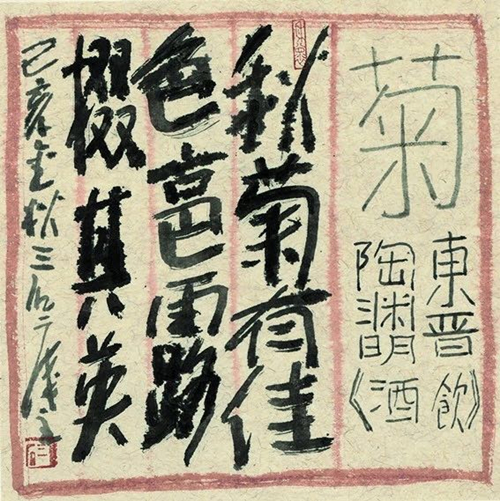 菊
東晋飲》
陶淵明《酒
秋菊有佳
色裛露
掇其英
己亥金秋三